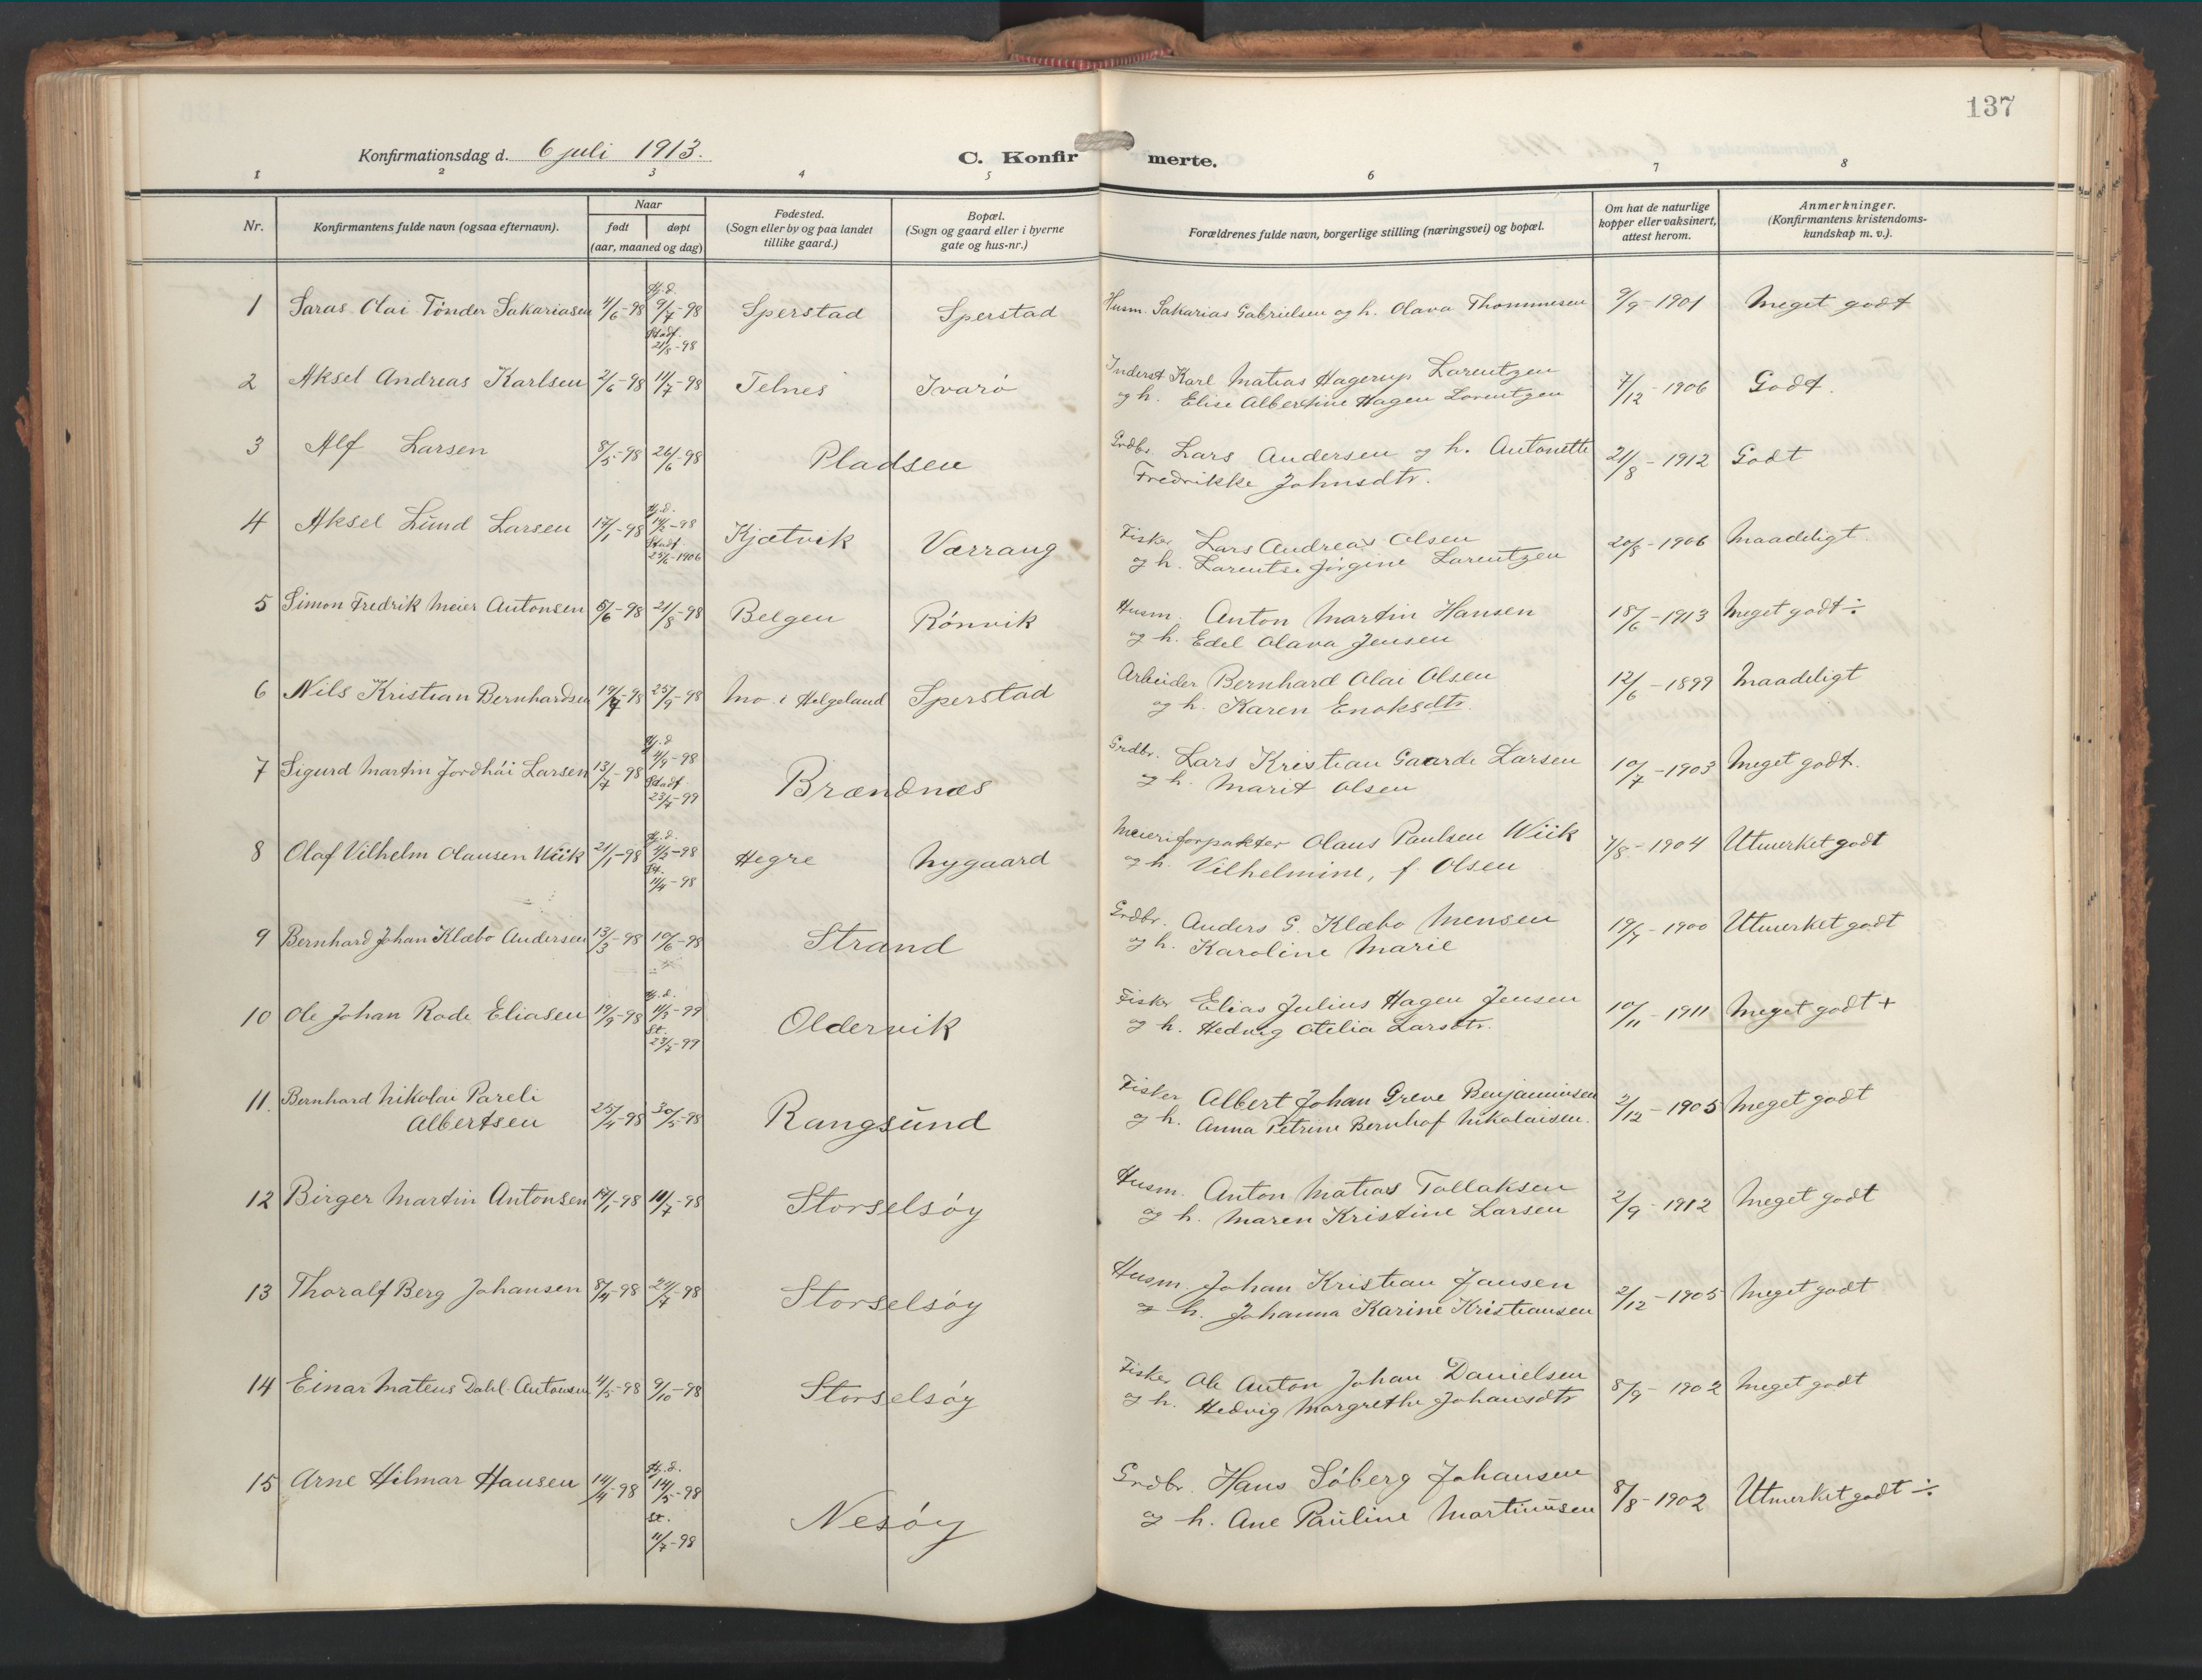 137
Konfirmationsdag d. 6 juli 1913.
C. Konfirmerte.
1 2 3 4 5 6 7 8
Nr.
Konfirmantens fulde navn (ogsaa efternavn).
Naar
født døpt
(aar, maaned og dag)
Fødested.
(Sogn eller by og paa landet
tillike gaard.)
Bopæl.
(Sogn og gaard eller i byerne
gate og hus-nr.)
Forældrenes fulde navn, borgerlige stilling (næringsvei) og bopæl.
Om hat de naturlige
kopper eller vaksinert,
attest herom.
Anmerkninger.
(Konfirmantens kristendoms-
kundskap m. v.).
1 Saras Olai Tönder Sakariasen 4/6-98 Hj.d. 9/7-98 Stadf. 21/8-98 Sperstad Sperstad Husm. Sakarias Gabrielsen og h. Olava Thommesen 9/9-1901 Meget godt
2 Aksel Andreas Karlsen 2/6-98 11/7-98 Telnes Ivarö Inderst Karl Matias Hagerup Lorentzen
og h. Elise Albertine Hagen Lorentzen 7/12-1906 Godt.
3 Alf Larsen 8/5-98 26/6-98 Pladsen Grdbr. Lars Andersen og h. Antonette
Fredrikke Johnsdtr. 21/8-1912 Godt
4 Aksel Lund Larsen 17/1-98 Hj.d. 14/2-98 Stadf. 25/6-1906 Kjætvik Værrang Fisker Lars Andreas Olsen
og h. Larentse Jörgine Larentzen 20/8-1906 Maadeligt.
5 Simon Fredrik Meier Antonsen 5/6-98 21/8-98 Belgen Rönvik Husm. Anton Martin Hansen
og h. Edel Olava Jensen 18/6-1913 Meget godt ÷
6 Nils Kristian Bernhardsen 19/7-98 25/9-98 Mo i Helgeland Sperstad Arbeider Bernhard Olai Olsen
og h. Karen Enoksdtr. 12/6-1899 Maadeligt
7 Sigurd Martin Jordhöi Larsen 13/7-98 Hj.d. 4/9-98 Stadf. 23/7-99 Brændnæs Grdbr. Lars Kristian Gaarde Larsen
og h. Marit Olsen 10/7-1903 Meget godt.
8 Olaf Vilhelm Olausen Wiik 21/1-98 Hj.d. 4/2-98 St. 11/4-98 Hegre Nygaard Meieriforpakter Olaus Paulsen Wiik
og h. Vilhelmine, f. Olsen 7/8-1904 Utmerket godt
9 Bernhard Johan Klæbo Andersen 13/3-98 10/6-98 Strand Grdbr. Anders G. Klæbo Mensen
og h. Karoline Marie 19/7-1900 Utmerket godt
10 Ole Johan Rode Eliasen 19/9-98 Hj.d. 11/3-99 St. 23/7-99 Oldervik Fisker Elias Julius Hagen Jensen
og h. Hedvig Otelia Larsdtr. 10/11-1911 Meget godt +
11. Bernhard Nikolai Pareli
Albertsen 25/4-98 30/5-98 Rangsund Fisker Albert Johan Greve Benjaminsen
og h. Anna Petrine Bernhof Nikolaisen. 2/12-1905 Meget godt
12 Birger Martin Antonsen 17/1-98 11/7-98 Storselsöy Husm. Anton Matias Tollaksen
og h. Maren Kristine Larsen 2/9-1912 Meget godt
13 Thoralf Berg Johansen 8/4-98 24/7-98 Storselsöy Husm. Johan Kristian Jansen
og h. Johanna Karine Kristiansen 2/12-1905 Meget godt
14 Einar Mateus Dahl Antonsen 4/5-98 9/10-98 Storselsöy Fisker Ole Anton Johan Danielsen
og h. Hedvig Margrethe Johansdtr 8/9-1902 Meget godt
15 Arne Hilmar Hansen 14/4-98 Hj.d. 14/5-98 St. 11/7-98 Nesöy Grdbr. Hans Söberg Johansen
og h. Ane Pauline Martinusen 8/8-1902 Utmerket godt ÷